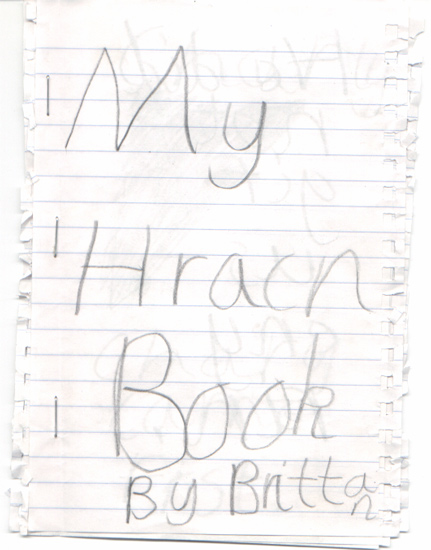 My
Hracn
Book
By Brittan